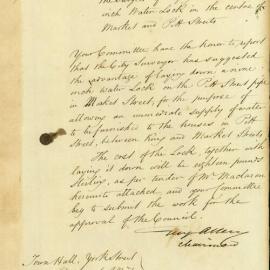 inch Water Lock in the centre of
Market and Pitt Streets
Your Committee have the honor to report
that the City Surveyor has suggested
the advantage of laying down a nine
inch Water Lock on the Pitt Street pipe
in Market Street, for the purpose of
allowing an immediate supply of water
to be furnished to the houses in Pitt
Street, between King and Market Streets
The cost of the Lock, together with
laying it down will be eighteen pounds
Sterling, as per tender of Mr Maclaren
herewith attached, and your Committee
beg to submit the work for the
approval of the Council.
Chairman
Town Hall, York Street